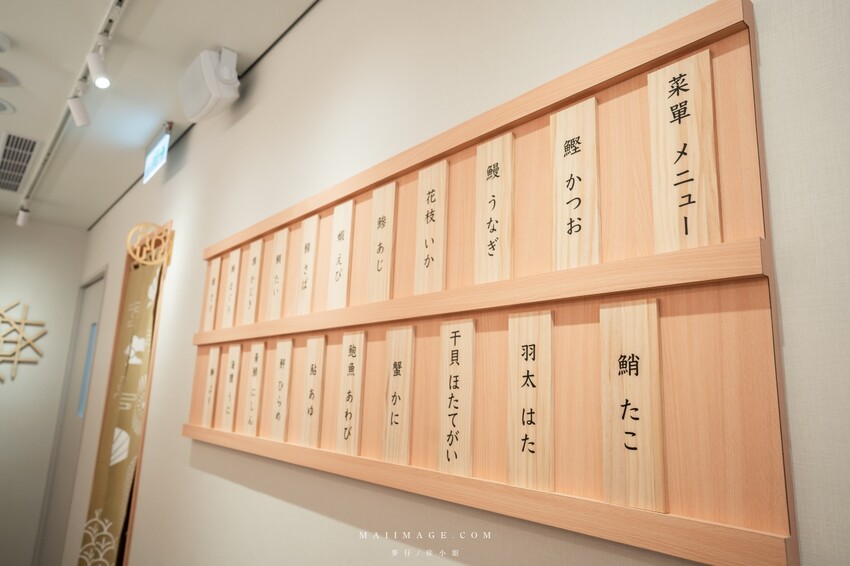 菜單 メニュー
鰹 かつお
鰻 うなぎ
花枝 いか
鰺 あじ
蝦 えび
鯖 さば
鯛 たい
鮹 たこ
羽太 はた
干貝 ほたてがい
蟹 かに
鮑魚 あわび
鮎 あゆ
鮃 ひらめ
にしん
海膽 うに
MAIIMAGE.COM